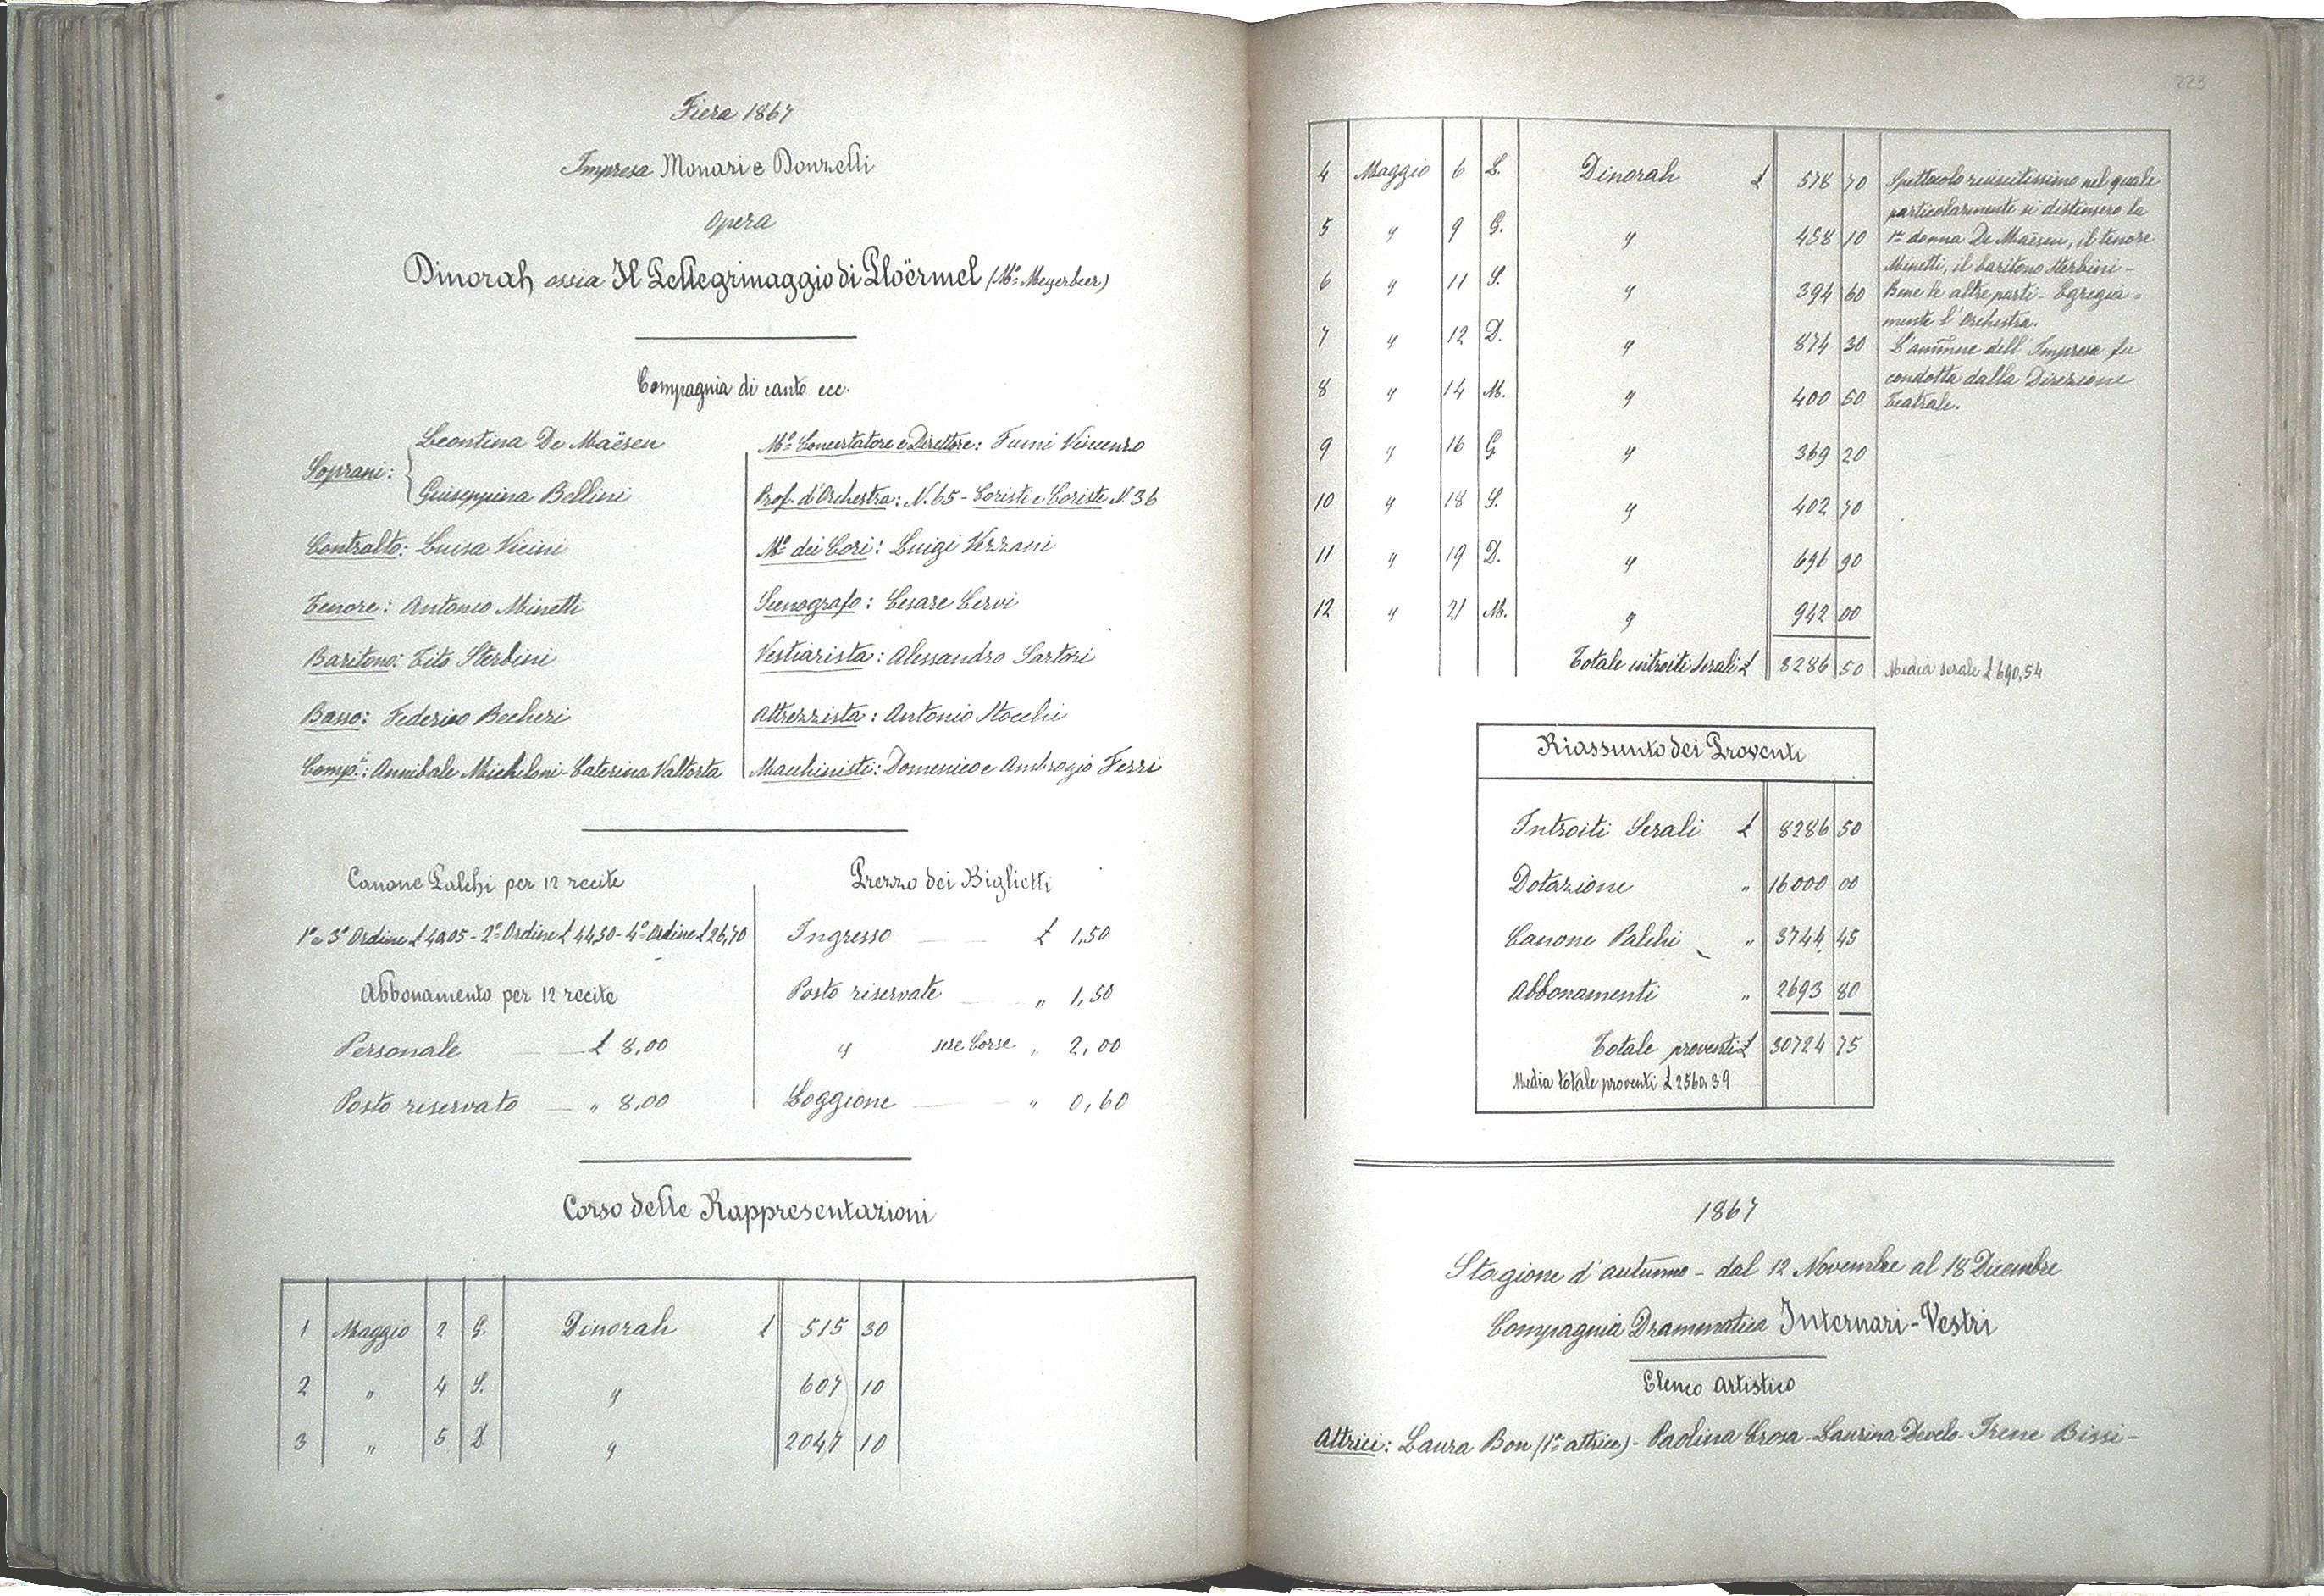 Fiera 1867
Impresa Monari e Donzelli
Opera
Dinorah ossia Il Pellegrinaggio di Ploërmel (Mº Meyerbeer)
Compagnia di canto ecc.
Soprani: Leontina De Maësen
Giuseppina Bellini
Contralto: Luisa Vicini
Tenore: Antonio Minetti
Baritono: Tito Sterbini
Basso: Federico Becheri
Comp.i: Annibale Micheloni - Caterina Valtorta
Mº Concertatore e Direttore: Fumi Vincenzo
Prof. d'Orchestra: N. 65 - Coristi e Coriste N 36
Mº dei Cori: Luigi Vezzani
Scenografo: Cesare Cervi
Vestiarista: Alessandro Sartori
Attrezzista: Antonio Stocchi
Macchinisti: Domenico e Ambrogio Ferri
Canone Palchi per 12 recite
1º e 3º Ordine £ 40,05 - 2º Ordine £ 44,50 - 4º Ordine £ 26,70
Abbonamento per 12 recite
Personale £ 8,00
Posto riservato " 8,00
Prezzo dei Biglietti
Ingresso £ 1,50
Posto riservate " 1,50
" sere Corse " 2,00
Loggione " 0,60
Corso delle Rappresentazioni
1 Maggio 2 G. Dinorah £ 515 30
2 " 4 S. " 607 10
3 " 5 D. " 2047 10
223
4 Maggio 6 L. Dinorah £ 578 70
5 " 9 G. " 458 10
6 " 11 S. " 394 60
7 " 12 D. " 874 30
8 " 14 M. " 400 50
9 " 16 G " 369 20
10 " 18 S. " 402 70
11 " 19 D. " 696 90
12 " 21 M. " 942 00
Totale introiti serali £ 8286 50 Media serale £ 690,54
Spettacolo riuscitissimo nel quale
particolarmente si distinsero la
1ª donna De Maësen, il tenore
Minetti, il baritono Sterbini -
Bene le altre parti - Egregia=
mente l'Orchestra.
L'amm.ne dell'Impresa fu
condotta dalla Direzione
Teatrale.
Riassunto dei Proventi
Introiti Serali £ 8286 50
Dotazione " 16000 00
Canone Palchi " 3744 45
Abbonamenti " 2693 80
Totale proventi £ 30724 75
Media totale proventi £ 2560,39
1867
Stagione d'autunno - dal 12 Novembre al 18 Dicembre
Compagnia Drammatica Internari - Vestri
Elenco Artistico
Attrici: Laura Bon (1ª attrice) - Paolina Crosa - Laurina Develo - Irene Bissi -